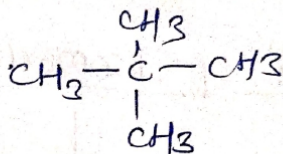 CH3
CH3—C—CH3
CH3